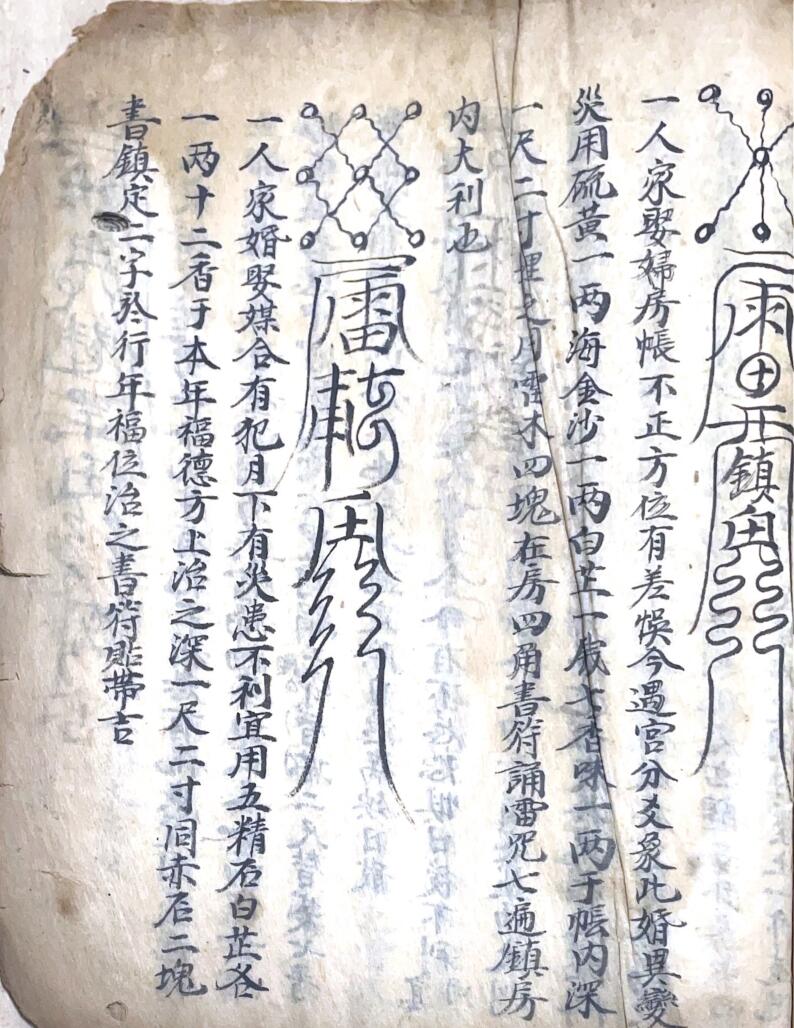 鎮
一人家娶婦房帳不正方位有差悮今遇宮分爻象此婚異變
災用硫黃一两海金沙一两白芷一戔七香味一两于帳內深
一尺二寸埋之用雷木四塊在房四角書符誦雷咒七遍鎮房
內大利也
一人家婚娶媒合有犯月下有災患不利宜用五精石白芷各
一两十二香于本年福德方上治之深一尺二寸同赤石二塊
書鎮定二字於行年福位治之書符貼帶吉